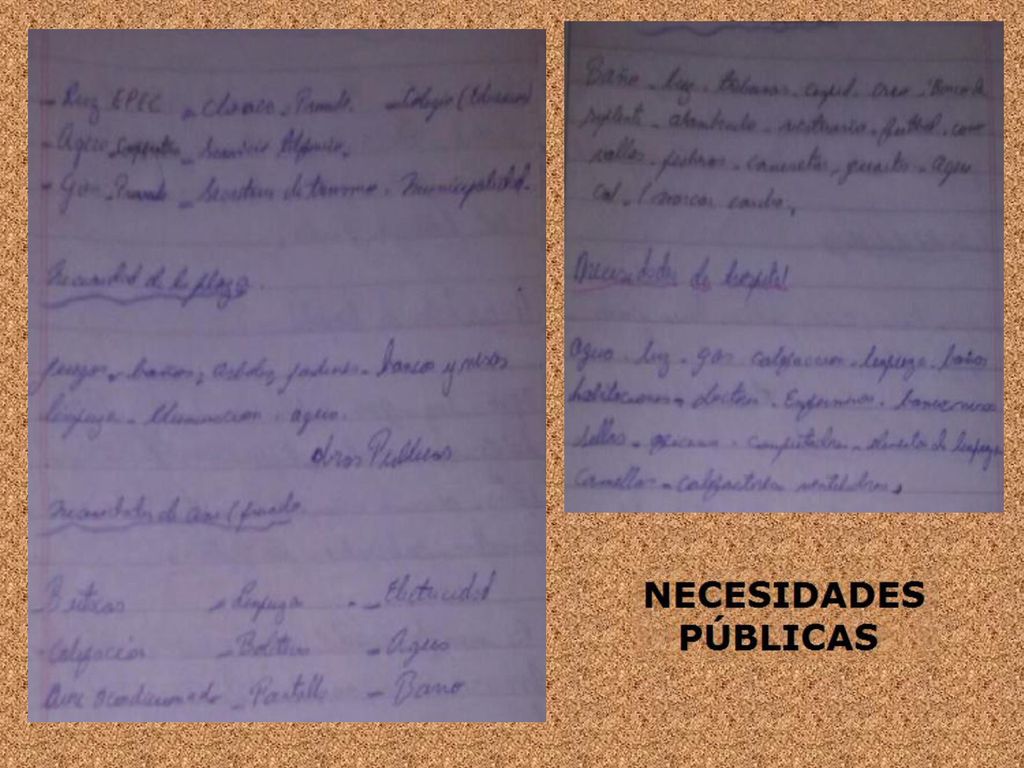 - Luz EPEC - Cloacas - Privado - Colegio (Educacion)
- Agua - - Servicio
- Gas - Privado - de turismo - Municipalidad.
Necesidad de la plaza
juegos - baños, arboles, jardines - bancos y mesas
limpieza - Iluminacion - agua.
obras Publicas
Necesidades de cine (privado
Butacas - Limpieza - Electricidad
Calefacción - Boletos - Agua
Aire acondicionado - Pantalla - Baño
Baño - luz - Tribunas - cesped - arco - Banco de
suplente - alambrado - vestuario - futbol - con
vallas - - camisetas - - agua
cal - (marcar cancha,
Necesidades de hospital
Agua - luz - gas calefaccion - limpieza - baños
habitaciones - doctores - Enfermeros -
sillas - - computadora - elementos de limpieza
camillas - calefactores ventiladores,
NECESIDADES
PÚBLICAS